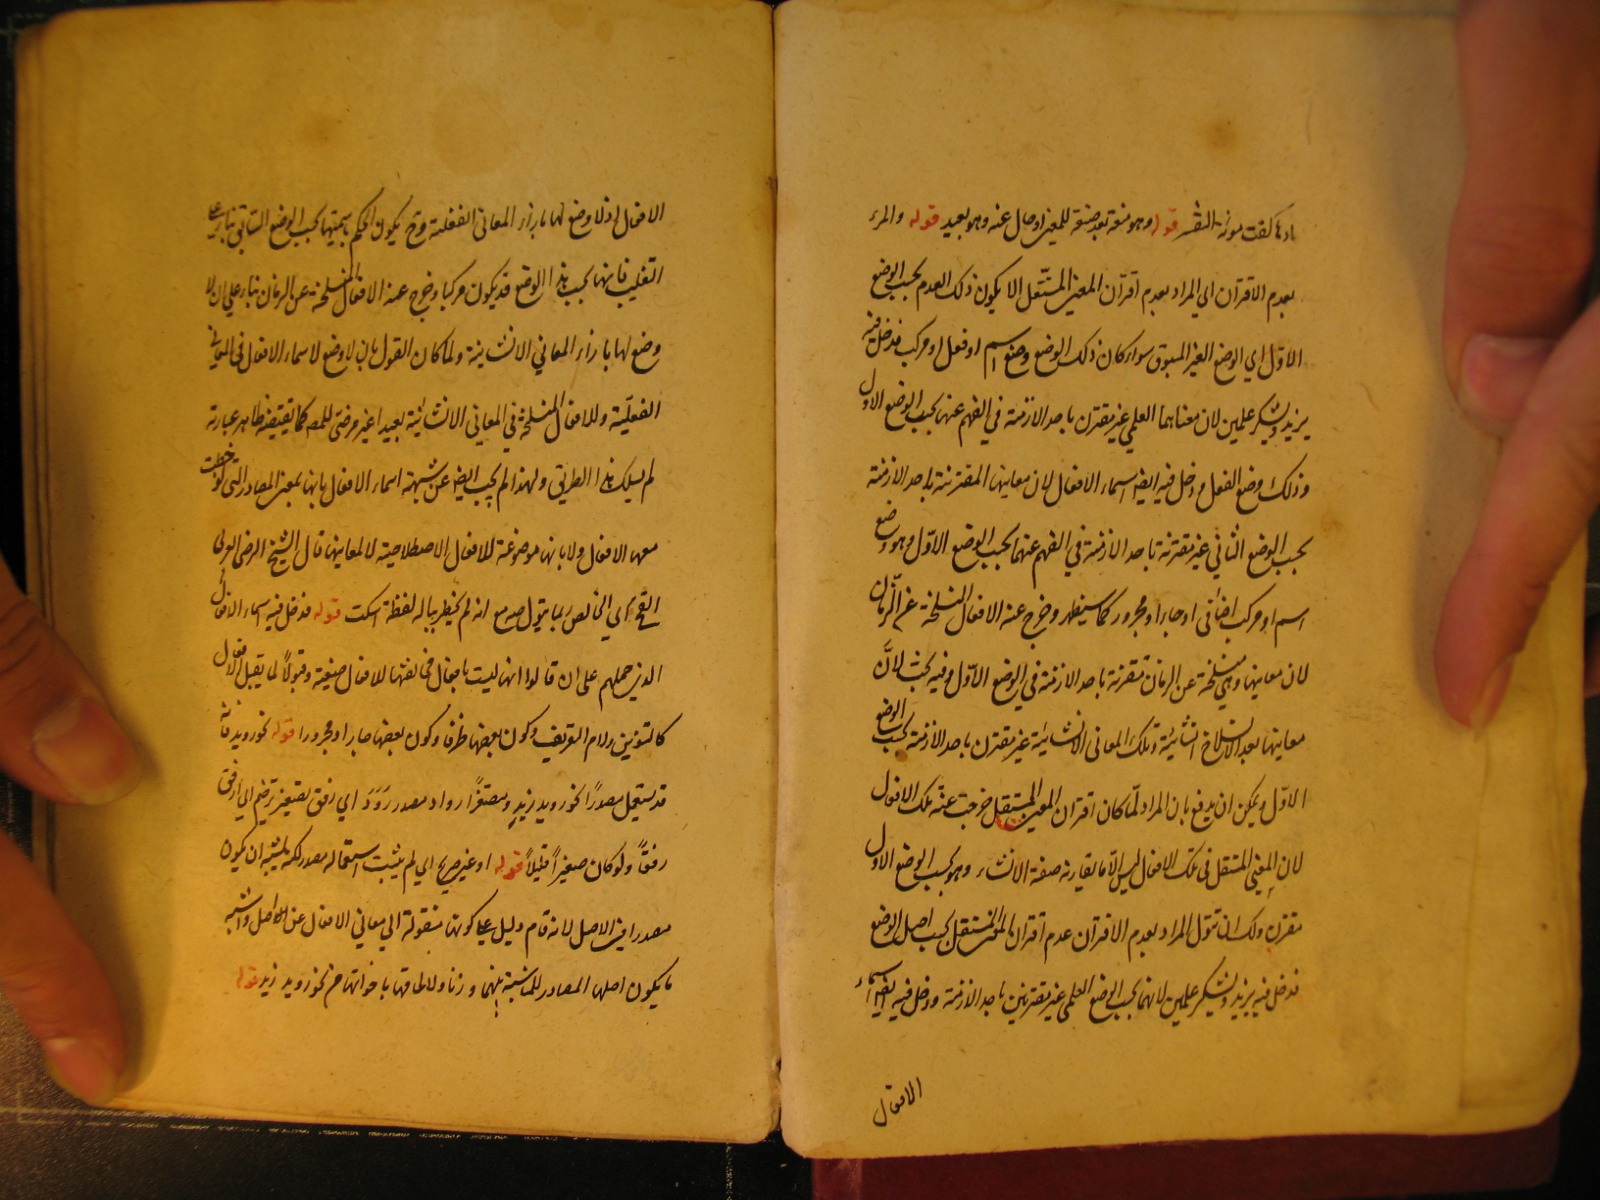 بادها كفت مونة التفسير قوله وهو منع بعد صفة للمعنى او حال عنه وهو بعيد قوله والمراد
بعدم الاقتران اي المراد بعدم اقتران المعنى المستقل الا يكون ذلك العدم بحسب الوضع
الاول اي الوضع الغير المسبوق سواء كان ذلك الوضع وضع اسم او فعل او مركب فدخل فيه
يزيد ويشكر علمين لان معناهما العلمي غير مقترن باحد الازمنة في الفهم عنهما بحسب الوضع الاول
وذلك وضع الفعل ودخل فيه ايضا اسماء الافعال لان معانيها المقترنة باحد الازمنة
بحسب الوضع الثاني غير مقترنة باحد الازمنة في الفهم عنهما بحسب الوضع الاول وهو وضع
اسم او مركب اضافي او جار او مجرور كما سيظهر وخرج عنه الافعال المنسلخة عن الزمان
لان معانيها وهي منسلخة عن الزمان مقترنة باحد الازمنة في الوضع الاول وفيه بحث لان
معانيها بعد الانسلاخ انشائية وتلك المعاني الانشائية غير مقترن باحد الازمنة بحسب الوضع
الاول ويمكن ان يدفع بان المراد لما كان اقتران المعنى المستقل خرجت عنه تلك الافعال
لان المعنى المستقل في تلك الافعال ليس الا ما يقارنه صفة الانشاء وهو بحسب الوضع الاول
مقترن ولك ان تقول المراد بعدم الاقتران عدم اقتران المعنى المستقل بحسب اصل الوضع
فدخل فيه يزيد ويشكر علمين لانهما بحسب الوضع العلمي غير مقترنين باحد الازمنة ودخل فيه ايضا اسماء
الافعال
الافعال اذ لا وضع لها بازاء المعاني الفعلية وح يكون الحكم باسميتها بحسب الوضع السابق بناء على
التغليب فانها بحسب هذا الوضع قد يكون مركبا وخرج عنه الافعال المنسلخة عن الزمان بناء على ان لا
وضع لها بازاء المعاني الانشائية ولما كان القول بان لا وضع لاسماء الافعال في المعاني
الفعلية وللافعال المنسلخة في المعاني الانشائية بعيدا غير مرضي للمص كما يقتضيه ظاهر عبارته
لم يسلك هذا الطريق ولهذا لم يجب ايضا عن شبهة اسماء الافعال بانها بمعنى المصادر التي لوحظت
معها الافعال ولا بانها موضوعة للافعال الاصطلاحية لا لمعانيها قال الشيخ الرضي العربي
القح اي الخالص ربما يقول صه مع انه لم يخطر بباله لفظة اسكت قوله فدخل فيه اسماء الافعال
الذي حملهم على ان قالوا انها ليست بافعال مخالفتها للافعال صيغة وقبولا لما يقبل الافعال
كالتنوين ولام التعريف وكون بعضها ظرفا وكون بعضها جارا ومجرورا قوله نحو رويد فانه
قد يستعمل مصدرا نحو رويد زيد ومصغرا رواد مصدر رود اي رفق تصغير ترخيم اي ارفق
رفقا ولو كان صغيرا قليلا قوله او غير صريح اي لم يثبت استعماله مصدر لكنه يشبه ان يكون
مصدرا في الاصل لانه قام دليل على كونها منقولة الى معاني الافعال عن الاصل واشبه
ما يكون اصلها المصادر للمناسبة بينهما وزنا ولالحاقها باخواتها من نحو رويد زيد قوله